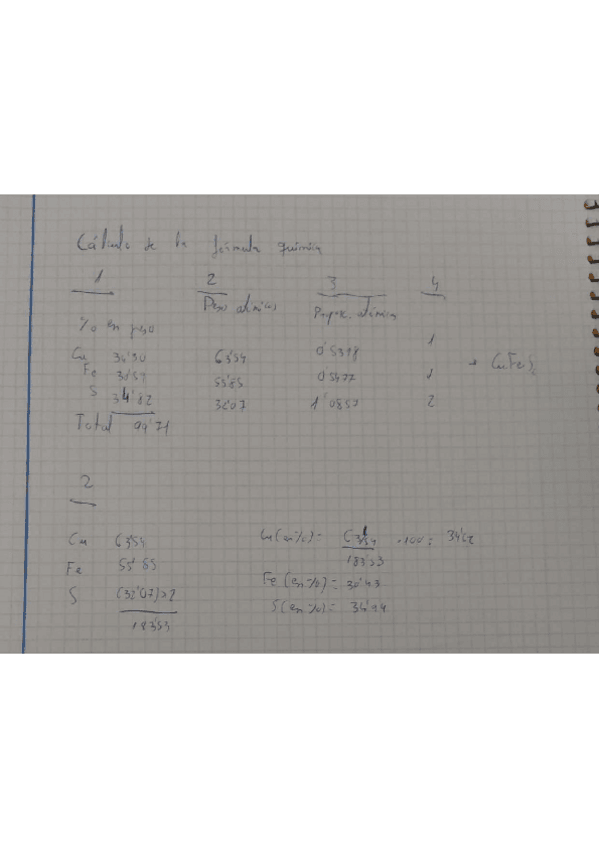 Cálculo de la fórmula química
1 2 3 4
% en peso Peso atómico Propor. atómica
Cu 34'30 63'54 0'5398 1
Fe 30'59 55'85 0'5477 1 → CuFeS2
S 34'82 32'07 1'0857 2
Total 99'71
2
Cu 63'54 Cu (en %) = 63'54 / 183'53 · 100 = 34'62
Fe 55'85 Fe (en %) = 30'43
S (32'07)x2 S (en %) = 34'94
183'53